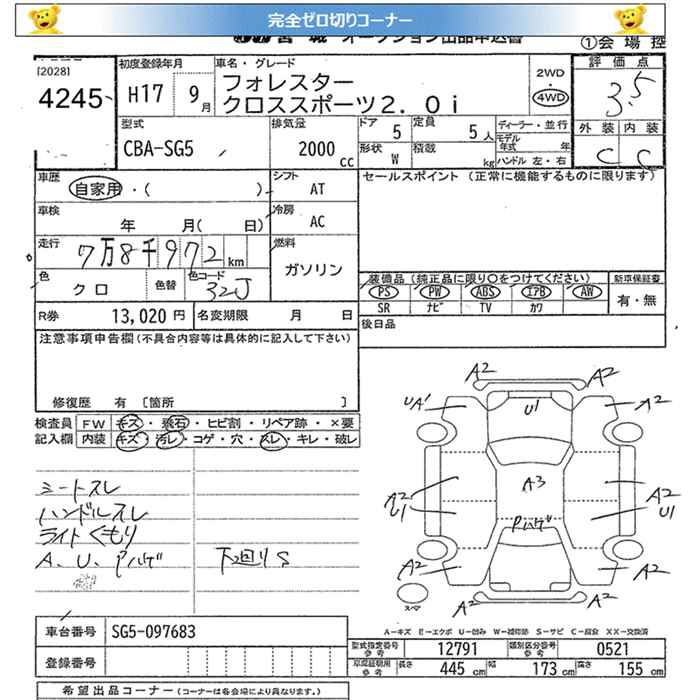 完全ゼロ切りコーナー
宮 城 オークション出品申込書
①会 場 控
[2028]
4245
初度登録年月
H17 9月
車名・グレード
フォレスター
クロススポーツ2.0i
2WD
・
4WD
評 価 点
3.5
外 装 内 装
C C
型式
CBA-SG5
排気量
2000 cc
ドア 5
定員 5人
形状 W
積載 kg
ディーラー・並行
モデル年式 年
ハンドル 左・右
車歴
自家用・( )
シフト AT
セールスポイント (正常に機能するものに限ります)
車検
年 月( 日)
冷房 AC
走行
7万8千972km
燃料
ガソリン
色
クロ
色替
色コード
32J
装備品(純正品に限り○をつけてください)
PS PW ABS エアB AW
SR ナビ TV カワ
新車保証書
有・無
R券 13,020円
名変期限 月 日
後日品
注意事項申告欄(不具合内容等は具体的に記入して下さい)
修復歴 有 [箇所 ]
検査員記入欄
FW キズ・飛石・ヒビ割・リペア跡・×要
内装 キズ・汚レ・コゲ・穴・スレ・キレ・破レ
シートスレ
ハンドルスレ
ライトくもり
A、U、Pハゲ
下回りS
A2 A2
UA' U1 A2
A2 A3 A2
U1 U1
Pハゲ
A2 A2
A2 A2
スペア
A-キズ E-エクボ U-凹み W-補修跡 S-サビ C-腐食 XX-交換済
車台番号 SG5-097683
登録番号
型式指定番号 参考 12791
類別区分番号 参考 0521
車庫証明用 参考 長さ 445 cm 幅 173 cm 高さ 155 cm
希望出品コーナー(コーナーは各会場により異なります。)